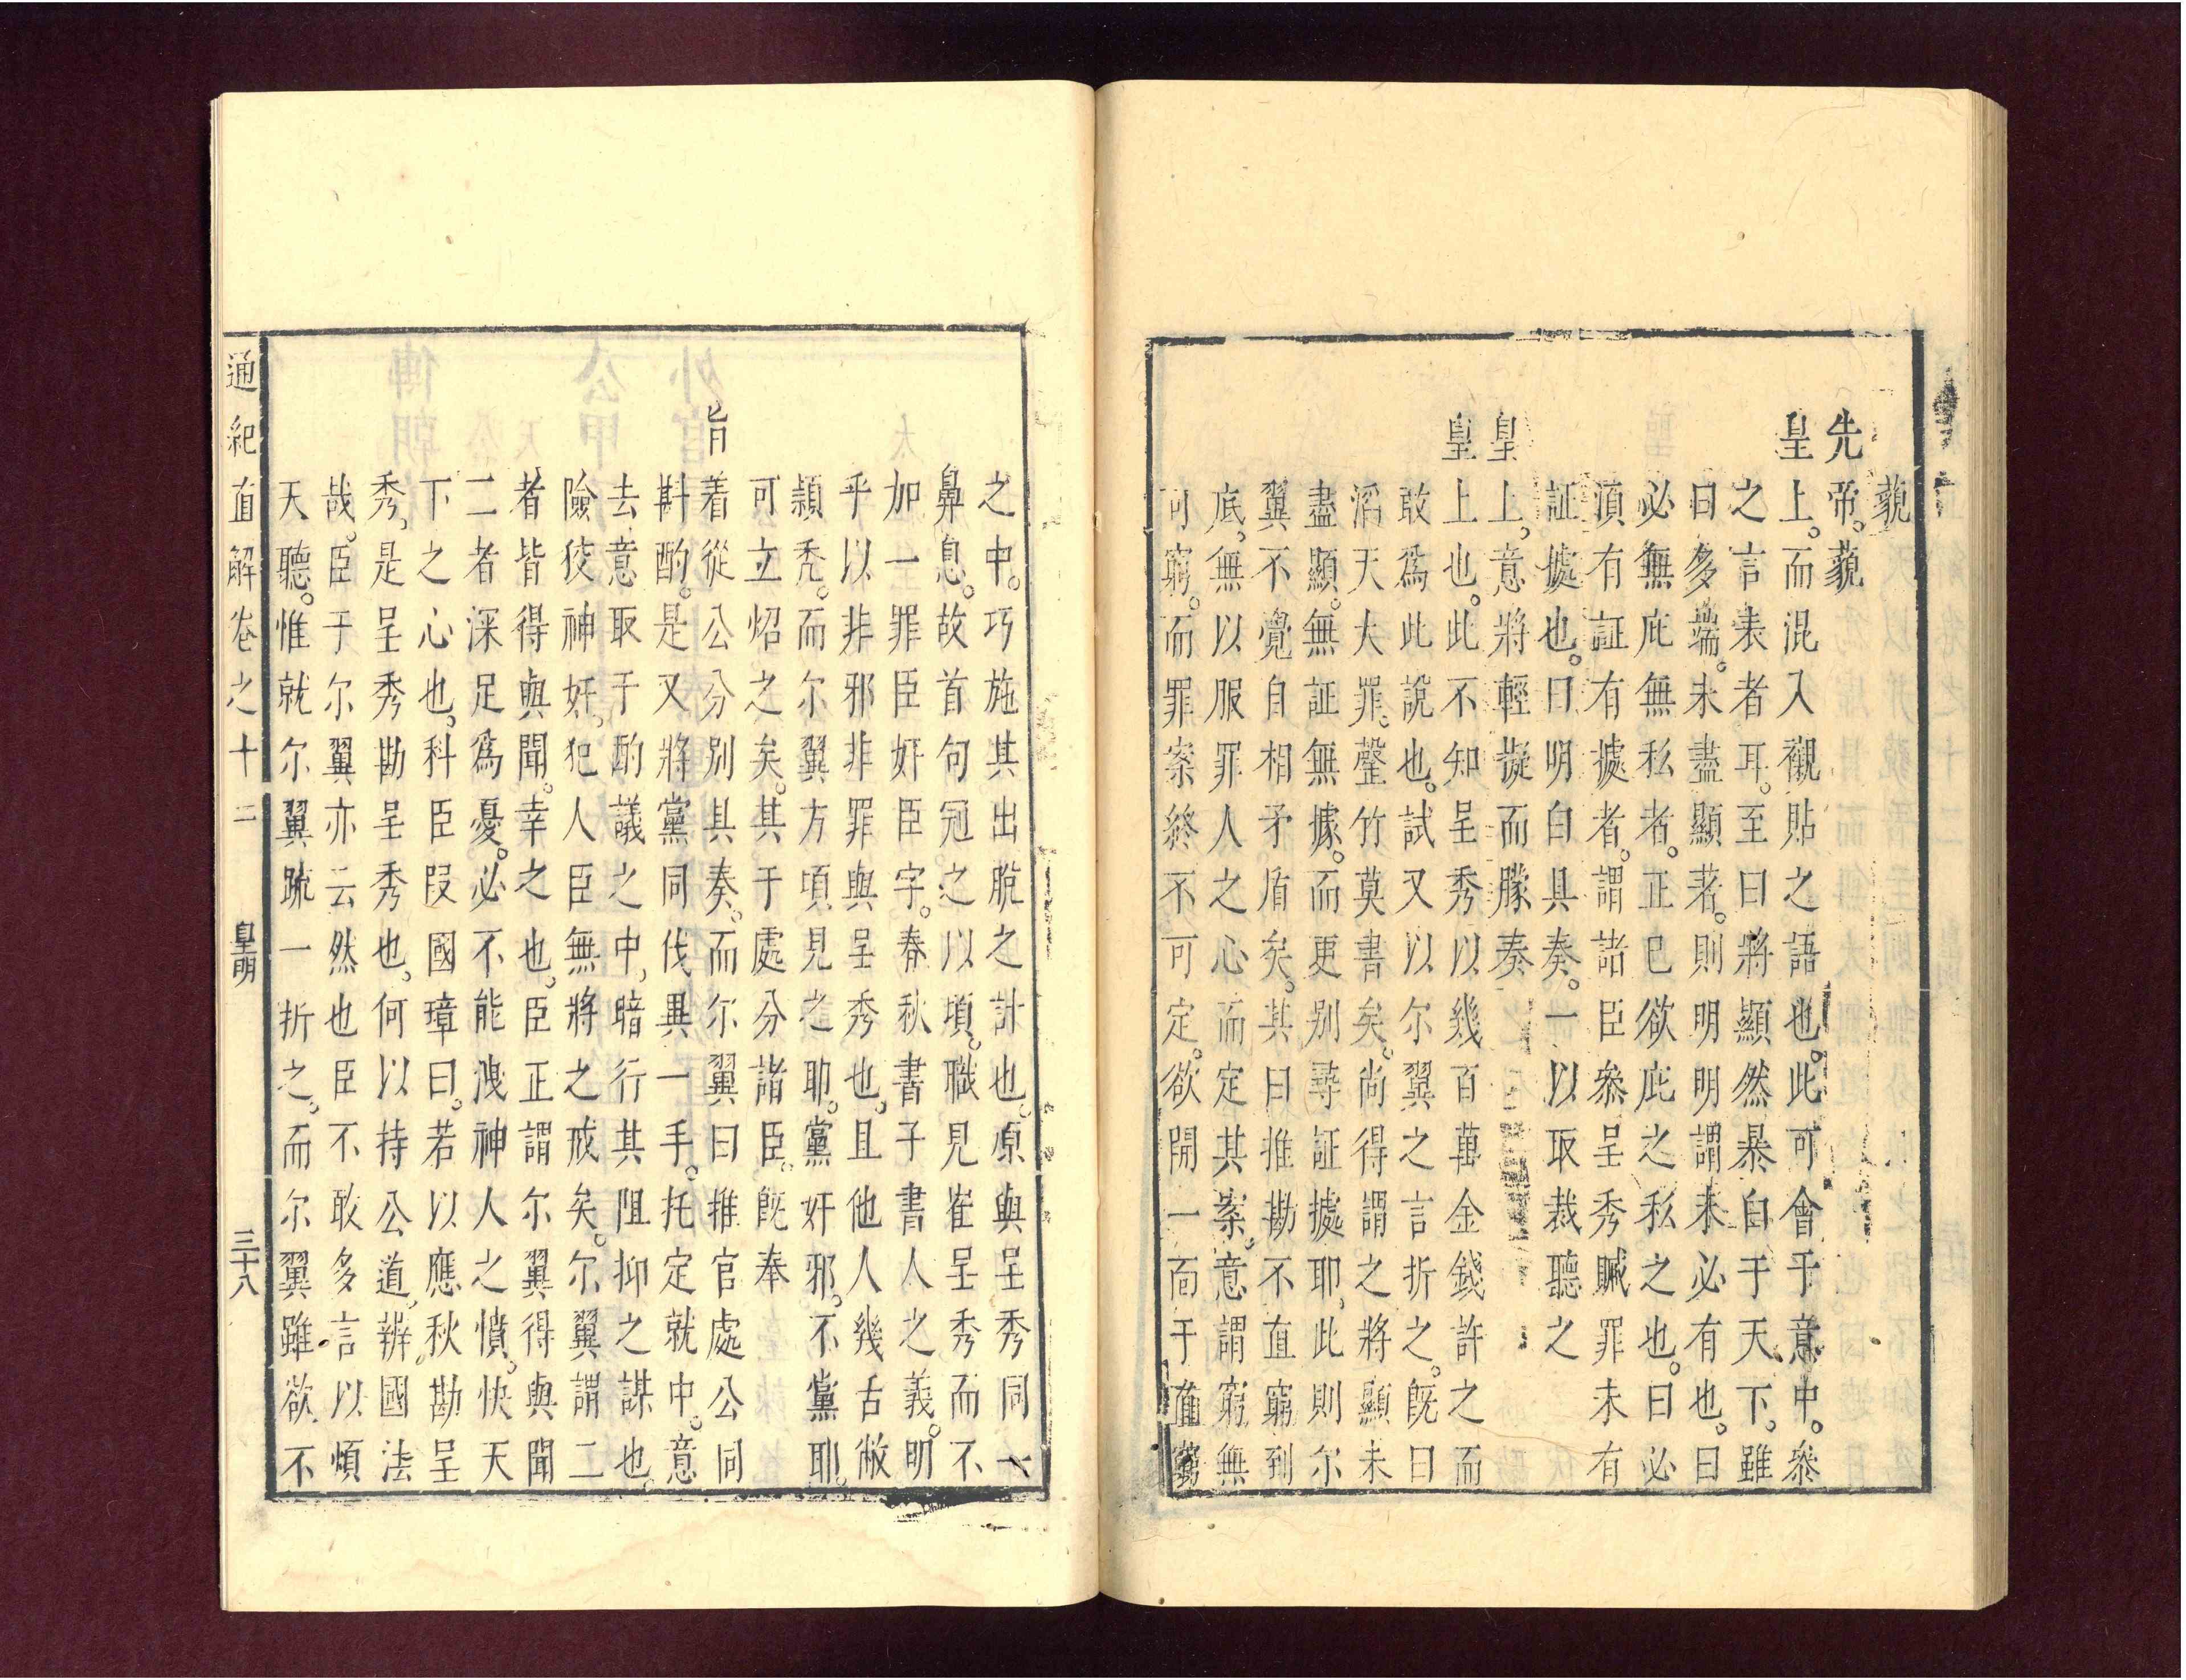 藐
先帝。藐
皇上。而混入襯貼之語也。此可會乎意中。叅
之言表者耳。至曰將顯然暴白于天下。雖
曰多端。未盡顯著。則明明謂未必有也。曰
必無庇無私者。正已欲庇之私之也。曰必
湏有証有據者。謂諸臣叅呈秀贓罪未有
証據也。曰明白具奏。一以取裁聽之
皇上。意將輕擬而朦奏
皇上也。此不知呈秀以幾百萬金錢許之而
敢爲此說也。試又以尔翼之言折之。旣曰
滔天大罪。罄竹莫書矣。尚得謂之將顯未
盡顯。無証無據。而更别尋証據耶。此則尔
翼不覺自相矛盾矣。其曰推勘不直窮到
底。無以服罪人之心而定其案。意謂窮無
可窮。而罪案終不可定。欲開一面于直窮
之中。巧施其出脫之計也。原與呈秀同一
鼻息。故首句冠之以項。職見崔呈秀而不
加一罪臣奸臣字。春秋書子書人之義。明
乎以非邪非罪與呈秀也。且他人幾舌敝
頴禿。而尔翼方頃見之耶。黨奸邪。不黨耶。
可立炤之矣。其于處分諸臣。旣奉
旨着從公分别具奏。而尔翼曰推官處公同
斟酌。是又將黨同伐異一手。托定就中。意
去意取于酌議之中。暗行其阻抑之謀也。
險狡神奸。犯人臣無將之戒矣。尔翼謂二
者皆得與聞。幸之也。臣正謂尔翼得與聞
二者深足爲憂。必不能洩神人之憤。快天
下之心也。科臣叚國璋曰。若以應秋勘呈
秀。是呈秀勘呈秀也。何以持公道。辨國法
哉。臣于尔翼亦云然也臣不敢多言以煩
天聽。惟就尔翼疏一折之。而尔翼雖欲不
通紀直解卷之十二　皇明　三十八